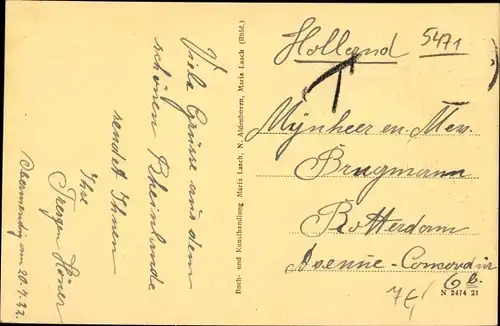 Viele Grüsse aus dem
schönen Rheinlande
sendet Ihnen
Ihre
Höner
Obermendig am 20.4.22.
Buch- und Kunsthandlung Maria Laach, N. Aldenhoven, Maria Laach (Rhld.)
Holland
5471
T
Mynheer en Mev.
Brugmann
Rotterdam
Avenue-Concordia
6 b.
N 2474 21